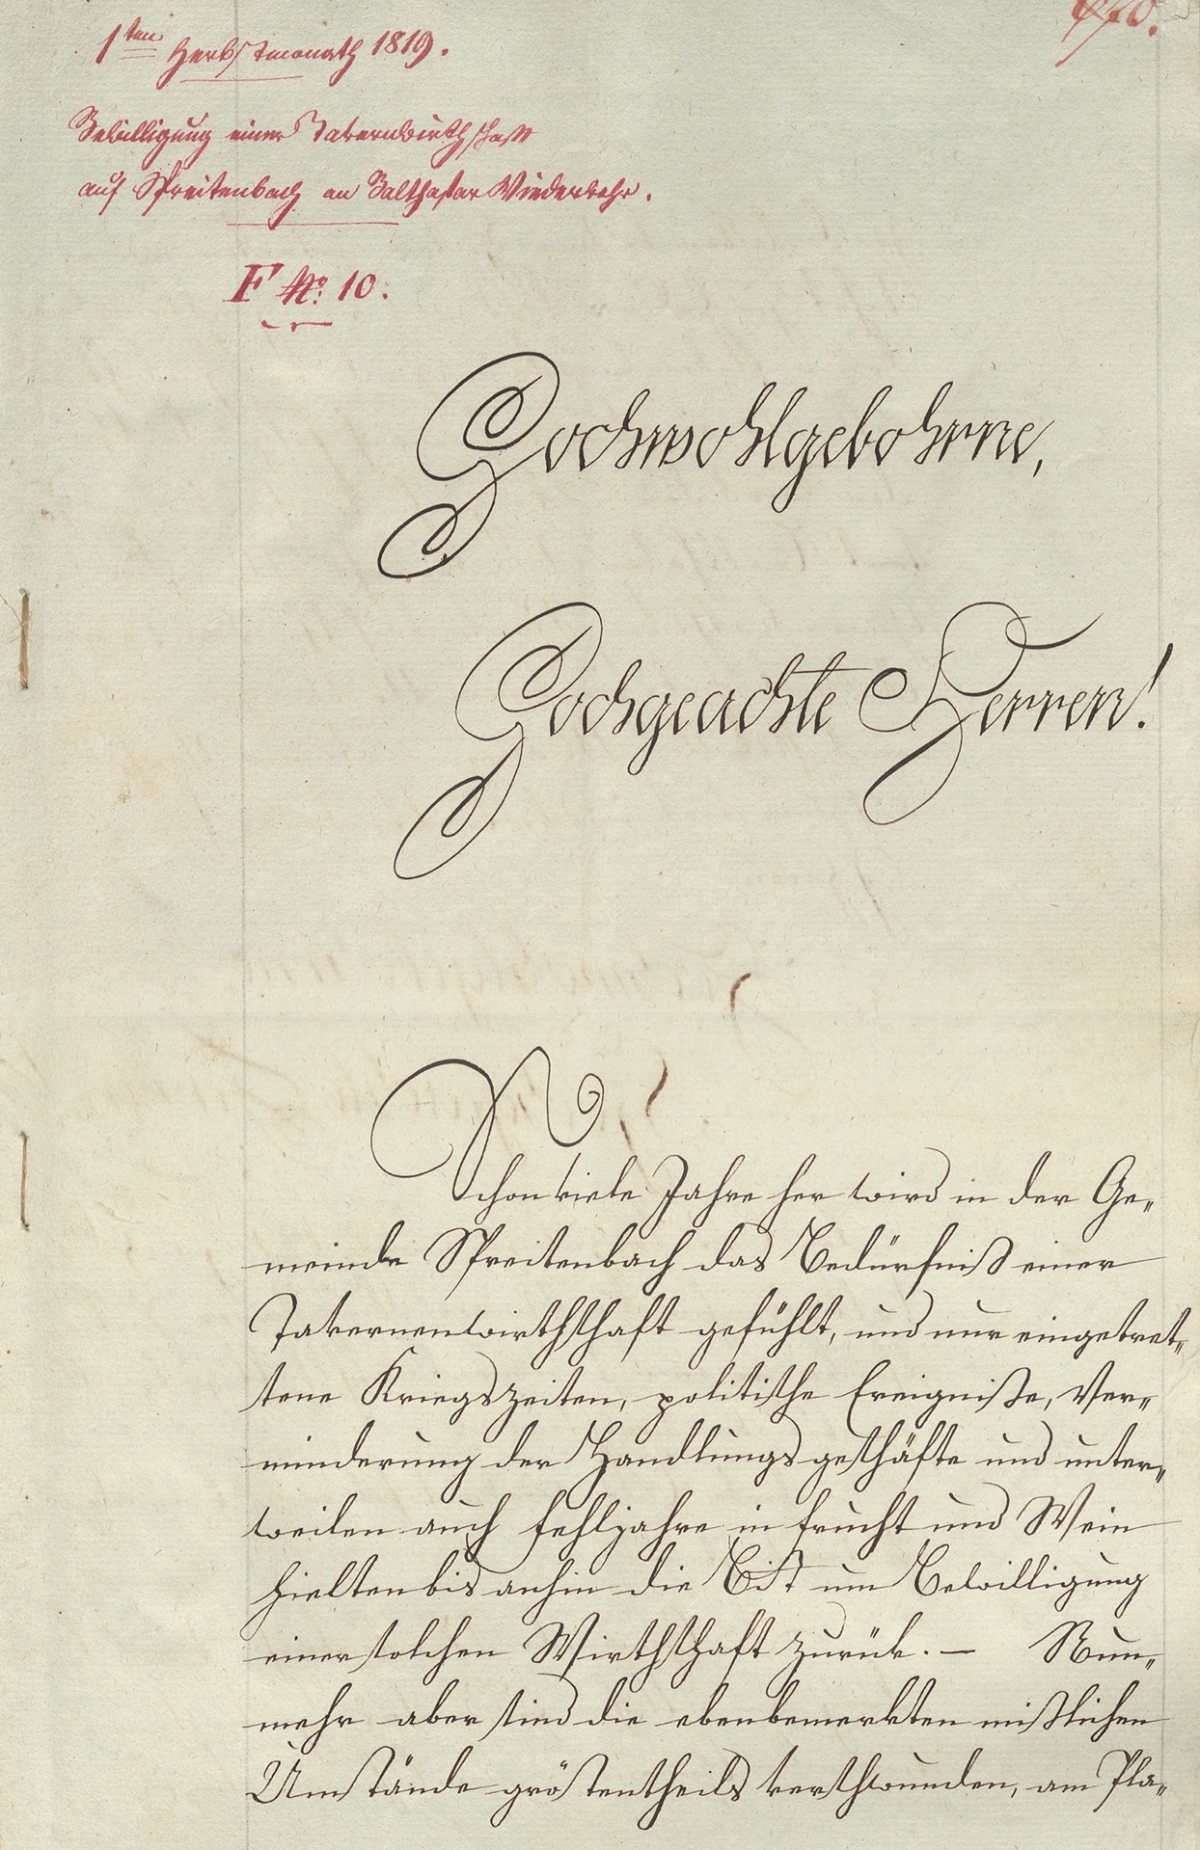 1ten Herbstmonath 1819.
Bewilligung einer Tavernwirthschaft
auf Spreitenbach an Balthasar Wiederkehr.
F No. 10.
Hochwohlgebohrne,
Hochgeachte Herren!
Schon viele Jahre her wird in der Ge-
meinde Spreitenbach das Bedürfniß einer
Tavernenwirthschaft gefühlt, und nur eingetret-
tene Kriegszeiten, politische Ereigniße, Ver-
minderung der Handlungsgeschäfte und unter-
weilen auch Fehljahre in Frucht und Wein
hielten bis anhin die Bitt um Bewilligung
einer solchen Wirthschaft zurük. – Nun-
mehr aber sind die ebenbemerkten mißlichen
Umstände gröstentheils verschwunden, am Pla-